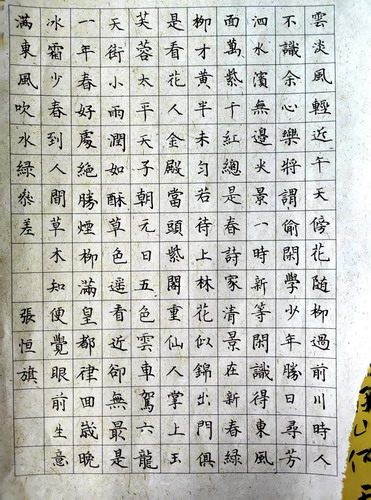 雲淡風輕近午天傍花隨柳過前川時人
不識余心樂將謂偷閑學少年勝日尋芳
泗水濱無邊光景一時新等閑識得東風
面萬紫千紅總是春詩家清景在新春綠
柳才黃半未勻若待上林花似錦出門俱
是看花人金殿當頭紫閣重仙人掌上玉
芙蓉太平天子朝元日五色雲車駕六龍
天街小雨潤如酥草色遙看近卻無最是
一年春好處絕勝煙柳滿皇都律回歲晚
冰霜少春到人間草木知便覺眼前生意
滿東風吹水綠參差 張恒旗